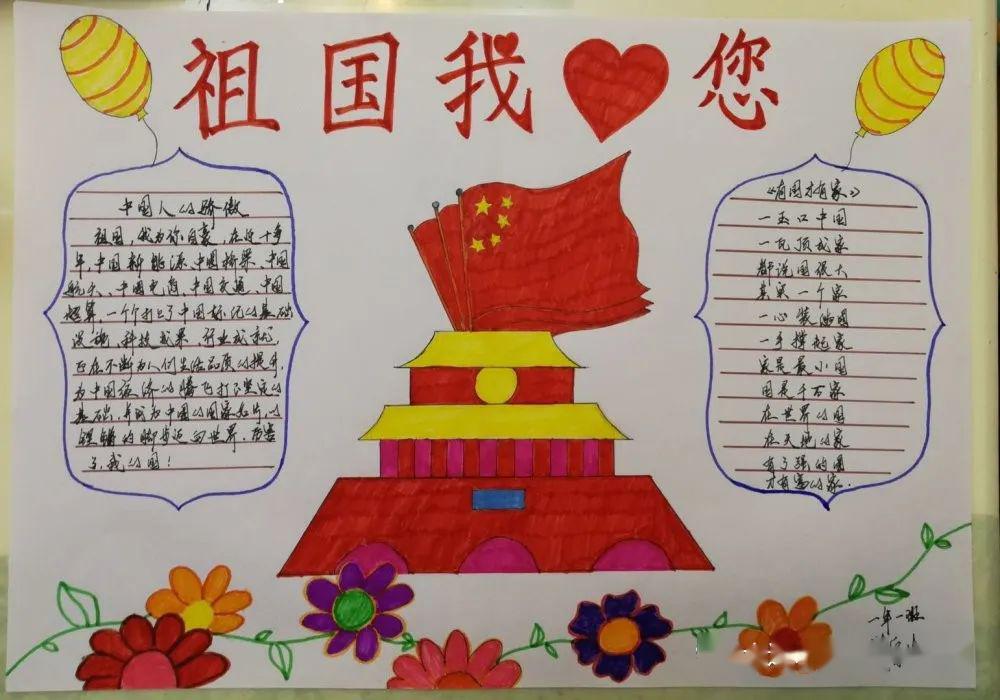 祖国我您
中国人的骄傲
祖国，我为你自豪，在这十多
年，中国新能源、中国桥梁、中国
航天、中国电商、中国交通、中国
超算，一个个打上了中国标记的基础
设施、科技成果、行业成就，
正在不断为人们生活品质的提升，
为中国经济的腾飞打下坚定的
基础，并成为中国的国家名片，以
铿锵的脚步迈向世界。厉害
了，我的国！
《有国才有家》
一玉口中国
一瓦顶成家
都说国很大
其实一个家
一心装满国
一手撑起家
家是最小国
国是千万家
在世界的国
在天地的家
有了强的国
才有富的家.
一年一班